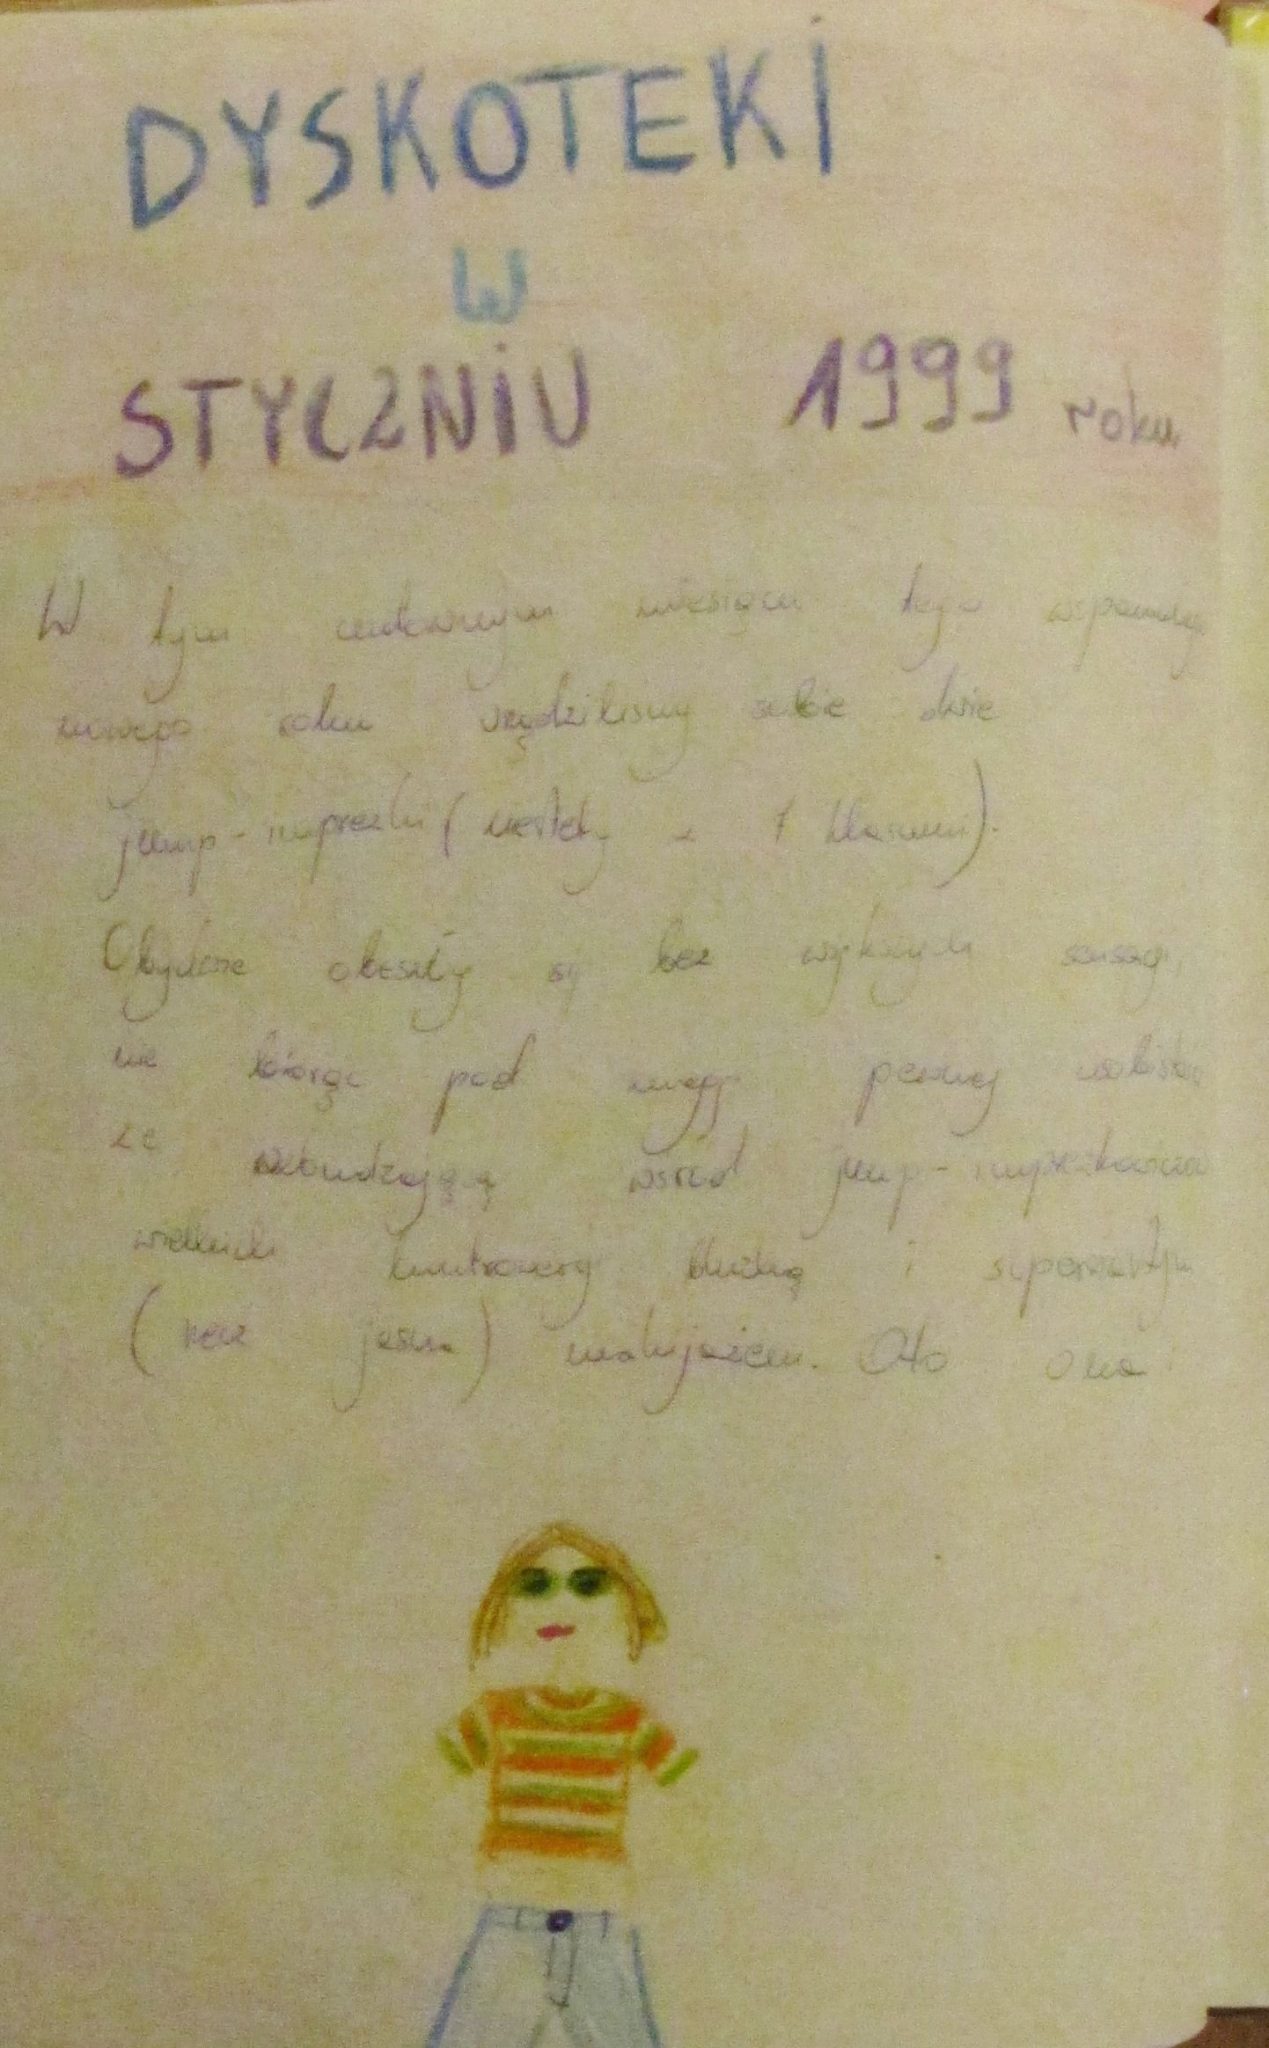 DYSKOTEKI
W
STYCZNIU 1999 roku
W tym cudownym miesiącu tego
nowego roku urządziliśmy sobie dwie
jump-imprezki (niestety z 7 klasami).
Obydwie obeszły się bez większych sensacji,
nie biorąc pod uwagę pewnej
wzbudzającą wśród jump-imprezkowiczów
kontrowersję bluzką i
(rzecz jasna) makijażem. Oto ona: